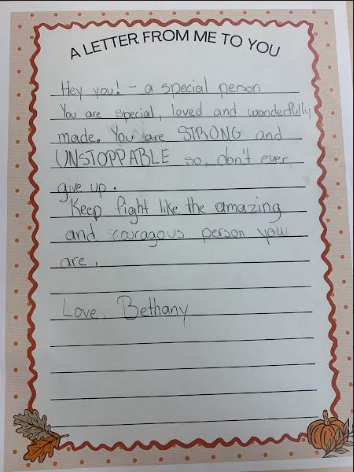 A LETTER FROM ME TO YOU
Hey you! - a special person
You are special, loved and wonderfully
made. You are STRONG and
UNSTOPPABLE so, don't ever
give up.
Keep fight like the amazing
and couragous person you
are.
Love, Bethany